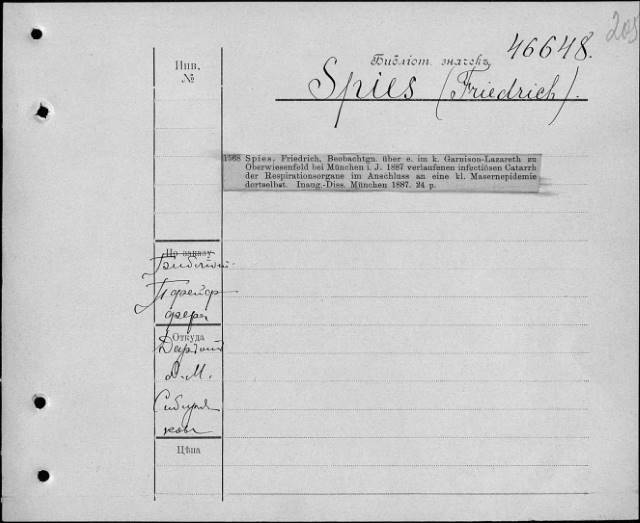 205
46648.
Инв.
№
Библіот. значекъ
Spies (Friedrich).
1568 Spies, Friedrich, Beobachtgn. über e. im k. Garnison-Lazareth zu
Oberwiesenfeld bei München i. J. 1887 verlaufenen infectiösen Catarrh
der Respirationsorgane im Anschluss an eine kl. Masernepidemie
dortselbst. Inaug.-Diss. München 1887. 24 p.
По заказу
Откуда
А. М.
Сибиря
кова
Цѣна